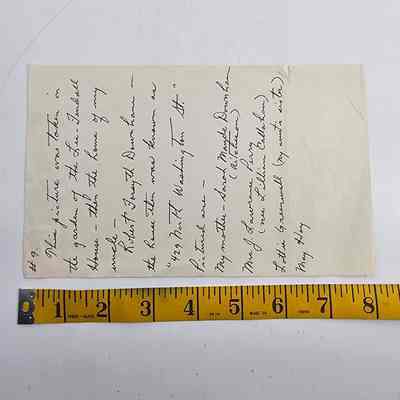 #9
This picture was taken in
the garden of the Lee-Fendall
House - then the home of my
uncle -
Robert Forsyth Downham -
the house then was known as
"429 North Washington St."
Pictured are -
My mother - Sarah Magde Downham
(Ritcheson)
Mrs J Lawrence Perry
(nee Lillian Callahan)
Lottie Greenwell (my aunt's sister)
May Hoy
1 2 3 4 5 6 7 8